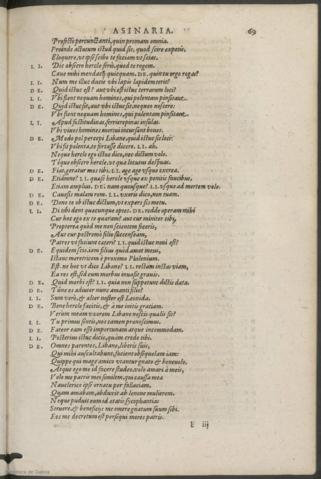 ASINARIA. 69
Profecto percunctanti, quin promam omnia.
Proinde actutum istud quid sit, quod scire expetis,
Eloquere, ut ipse scibo te faciam ut scias.
LI. Dic obsecro hercle seriò, quod te rogem.
Caue mihi mendacij quicquam. DE. quin tu ergo rogas?
LI. Num me illuc ducis vbi lapis lapidem terit?
DE. Quid istuc est? aut vbi est istuc terrarum loci?
LI. Vbi flent nequam homines, qui polentam pinsitant.
DE. Quid istuc sit, aut vbi istuc sit, nequeo noscere:
Vbi flent nequam homines, qui polentam pinsitant
LI. Apud fustitudinas, ferricrepinas insulas,
Vbi viuos homines mortui incursant boues.
DE. Modo pol percepi Libane, quid istuc sit loci:
Vbi fit polenta, te fortasse dicere. LI. ah,
Neque hercle ego istuc dico, nec dictum volo.
Téque obsecro hercle, vt quæ locutus despuas.
DE. Fiat, geratur mos tibi. LI. age age vsque excrea.
DE. Etiamne? LI. quæso hercle vsque ex penitis faucibus,
Etiam amplius. DE. nam quousque? LI. vsque ad mortem volo.
DE. Caue sis malam rem. LI. vxoris dico, non tuam.
DE. Dono te ob istuc dictum, vt expers sis metu.
LI. Di tibi dent quæcunque optes. DE. redde operam mihi
Cur hoc ego ex te quæram? aut cur miniter tibi,
Propterea quòd me non scientem feceris,
Aut cur postremò filio succenseam,
Patres vt faciunt cæteri? LI. quid istuc noui est?
DE. Equidem scio iam filius quòd amet meus,
Istanc meretricem è proxumo Philenium.
Est-ne hoc vt dico Libane? LI. rectam instas viam,
Ea res est, sed eum morbus inuasit grauis.
DE. Quid morbi est? LI. quia non suppetunt dictis data.
DE. Tune es adiutor nunc amanti filio?
LI. Sum verò, & alter noster est Leonida.
DE. Bene hercle facitis, & à me initis gratiam.
Verùm meam vxorem Libane nescis qualis sit?
LI. Tu primus sentis, nos tamen prænoscimus.
DE. Fateor eam esse importunam atque incommodam.
LI. Posterius istuc dicis, quàm credo tibi.
DE. Omnes parentes, Libane, liberis suis,
Qui mihi auscultabunt, facient obsequelam:
Quippe qui mage amico vtantur gnato & beneuolo.
Atque ego me id facere studeo, volo amari à meis,
Volo me patris mei similem, qui caussa mea
Nauclerico ipse ornatu per fallaciam,
Quam amabam, abduxit ab lenone mulierem.
Neque puduit eum id ætatis sycophantias
Struere, & beneficijs me emere gnatum suum sibi.
Eos me decretum est persequi mores patris.
E iij